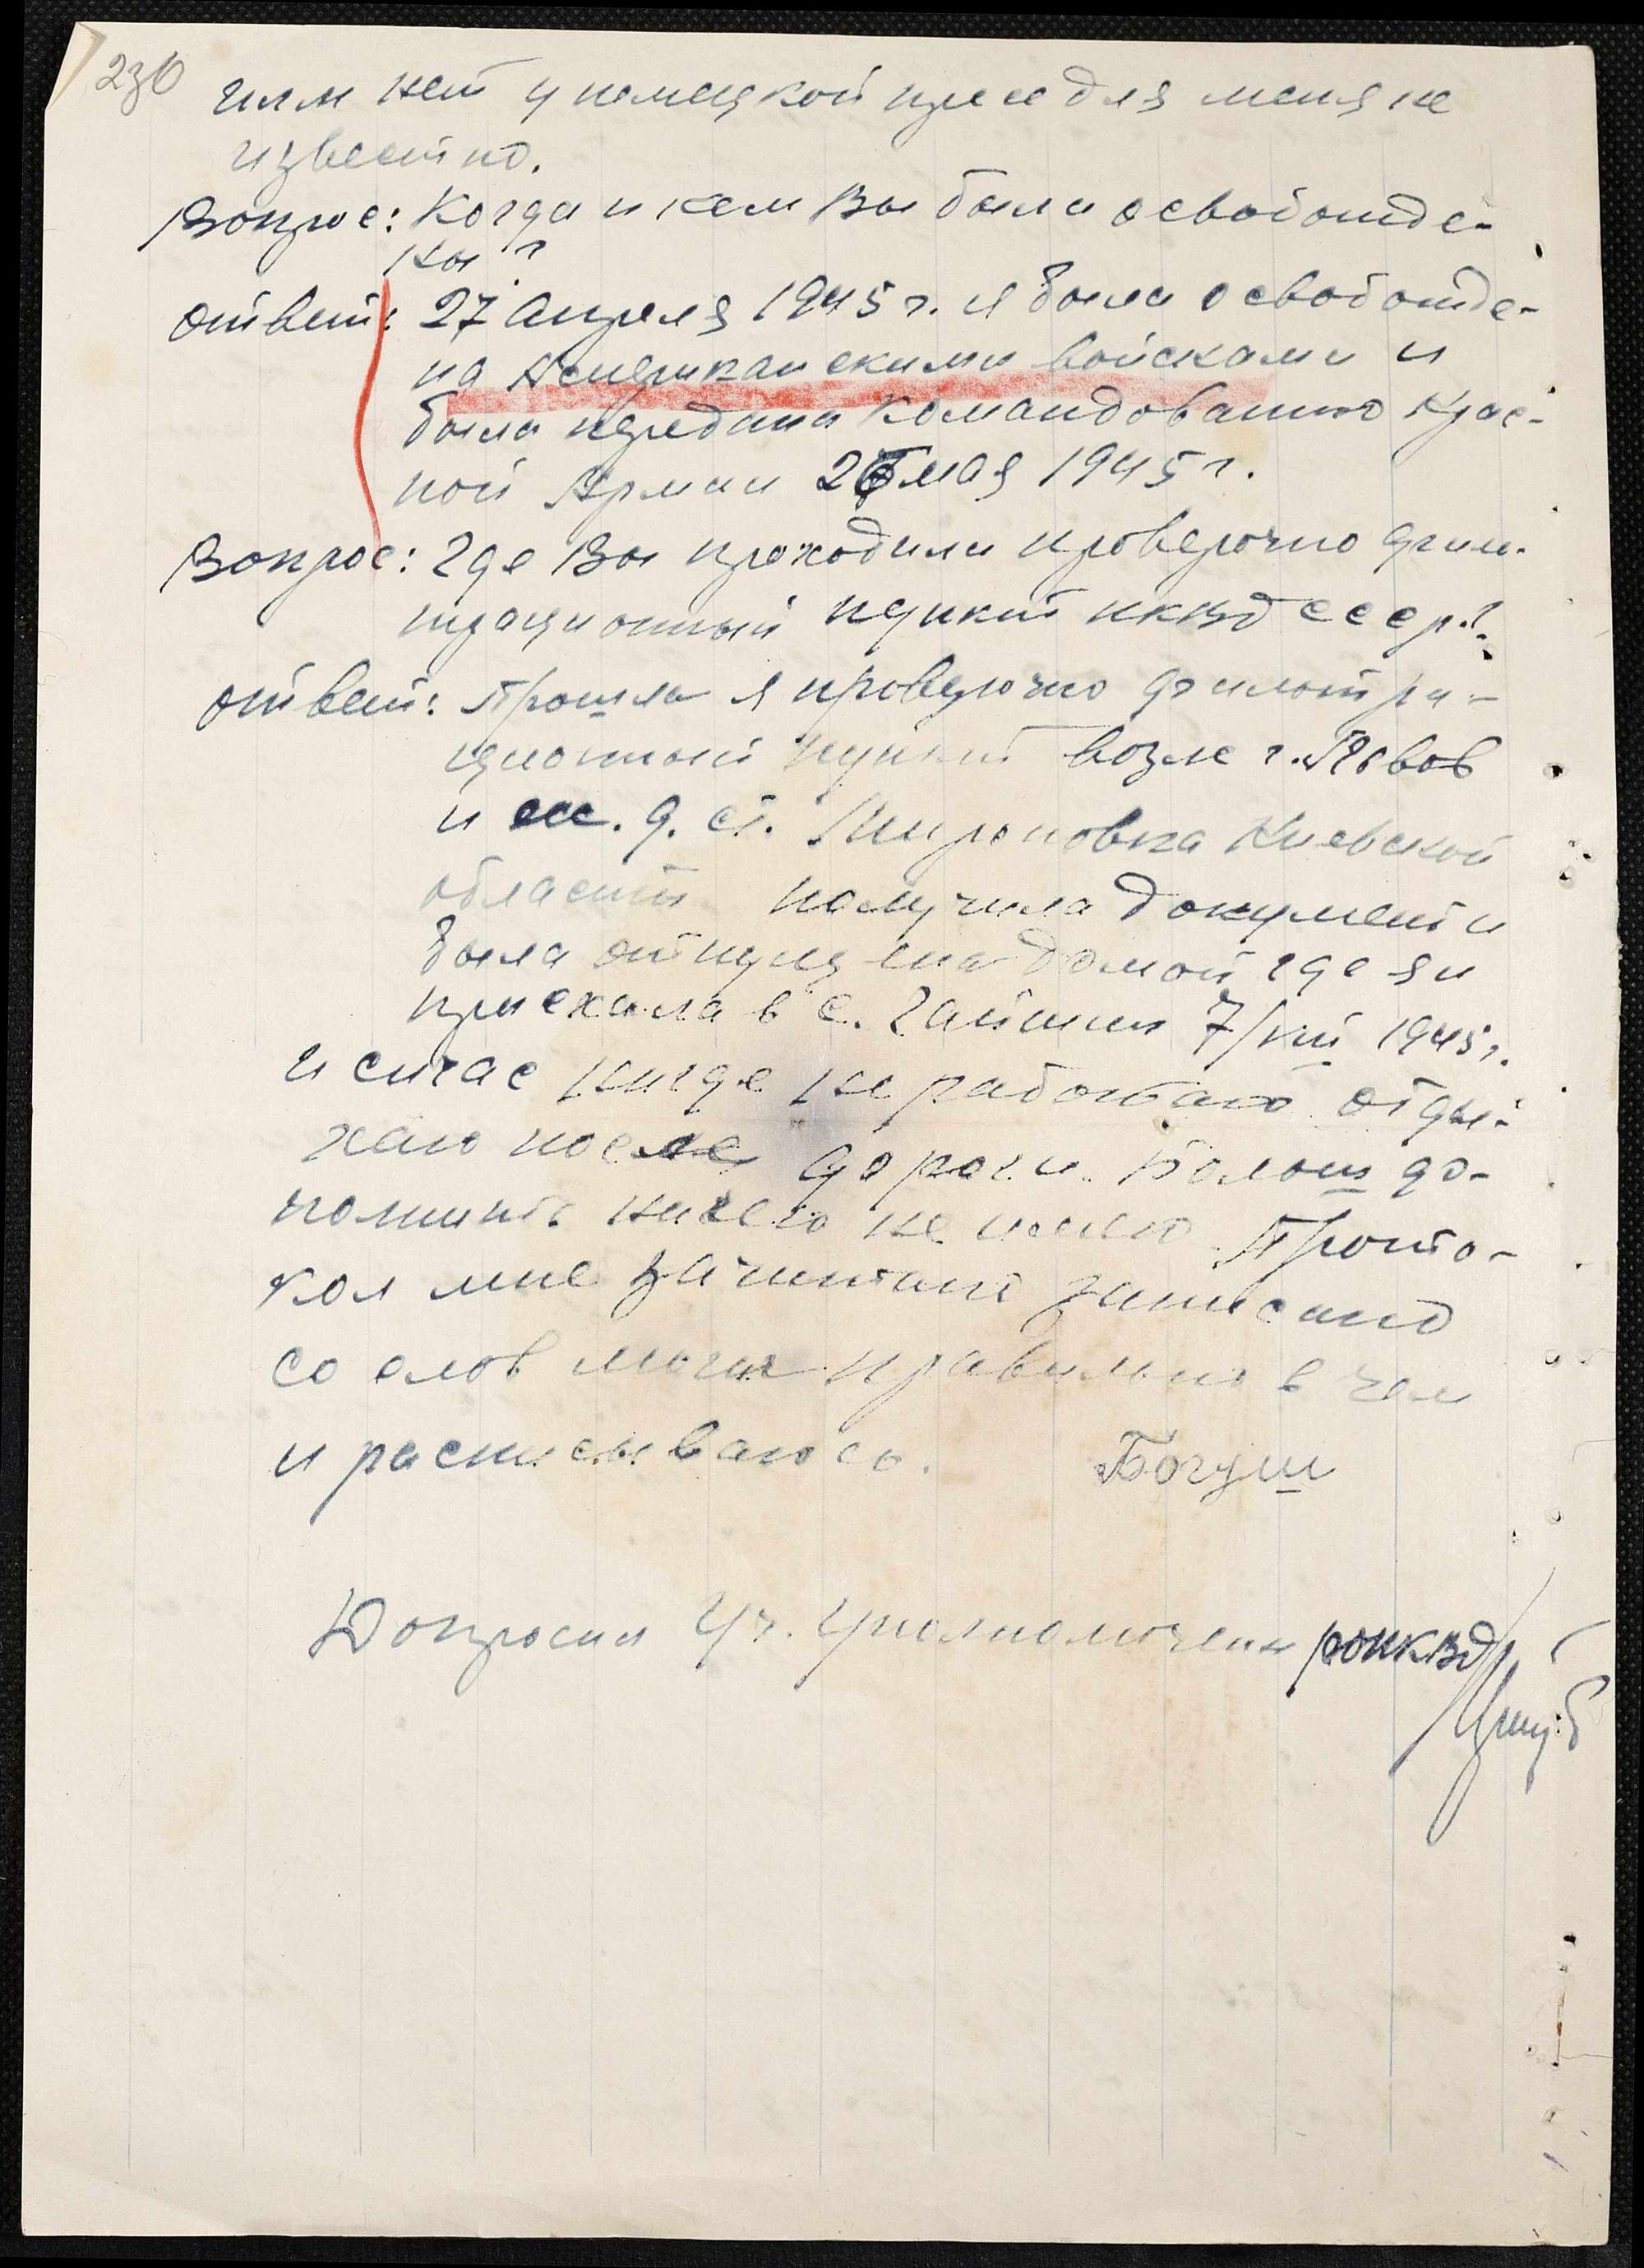 23б
или нет у немецкой предля меня не
известно.
Вопрос: Когда и кем Вы были освобожде-
ны?
ответ: 27 апреля 1945 г. я была освобожде-
на Американскими войсками и
была передана командованию крас-
ной Армии 26 мая 1945 г.
Вопрос: где Вы проходили проверочно филь-
трационный пункт НКВД СССР?
ответ: Прошла я проверочно фильтра-
ционный пункт возле г. Львов
и на. ж. д. ст. Мироновка Киевской
области получила документ и
была отпущена домой где я и
приехала в с. Гайшин 7/VIII 1945 г.
и сичас нигде не работаю отды-
хаю после дороги. Больш до-
полнить ничего не имею Прото-
кол мне зачитано записано
со слов моих правильно в чем
и расписываюсь. Богуш
Допросил Уч. Уполномочен РОНКВД